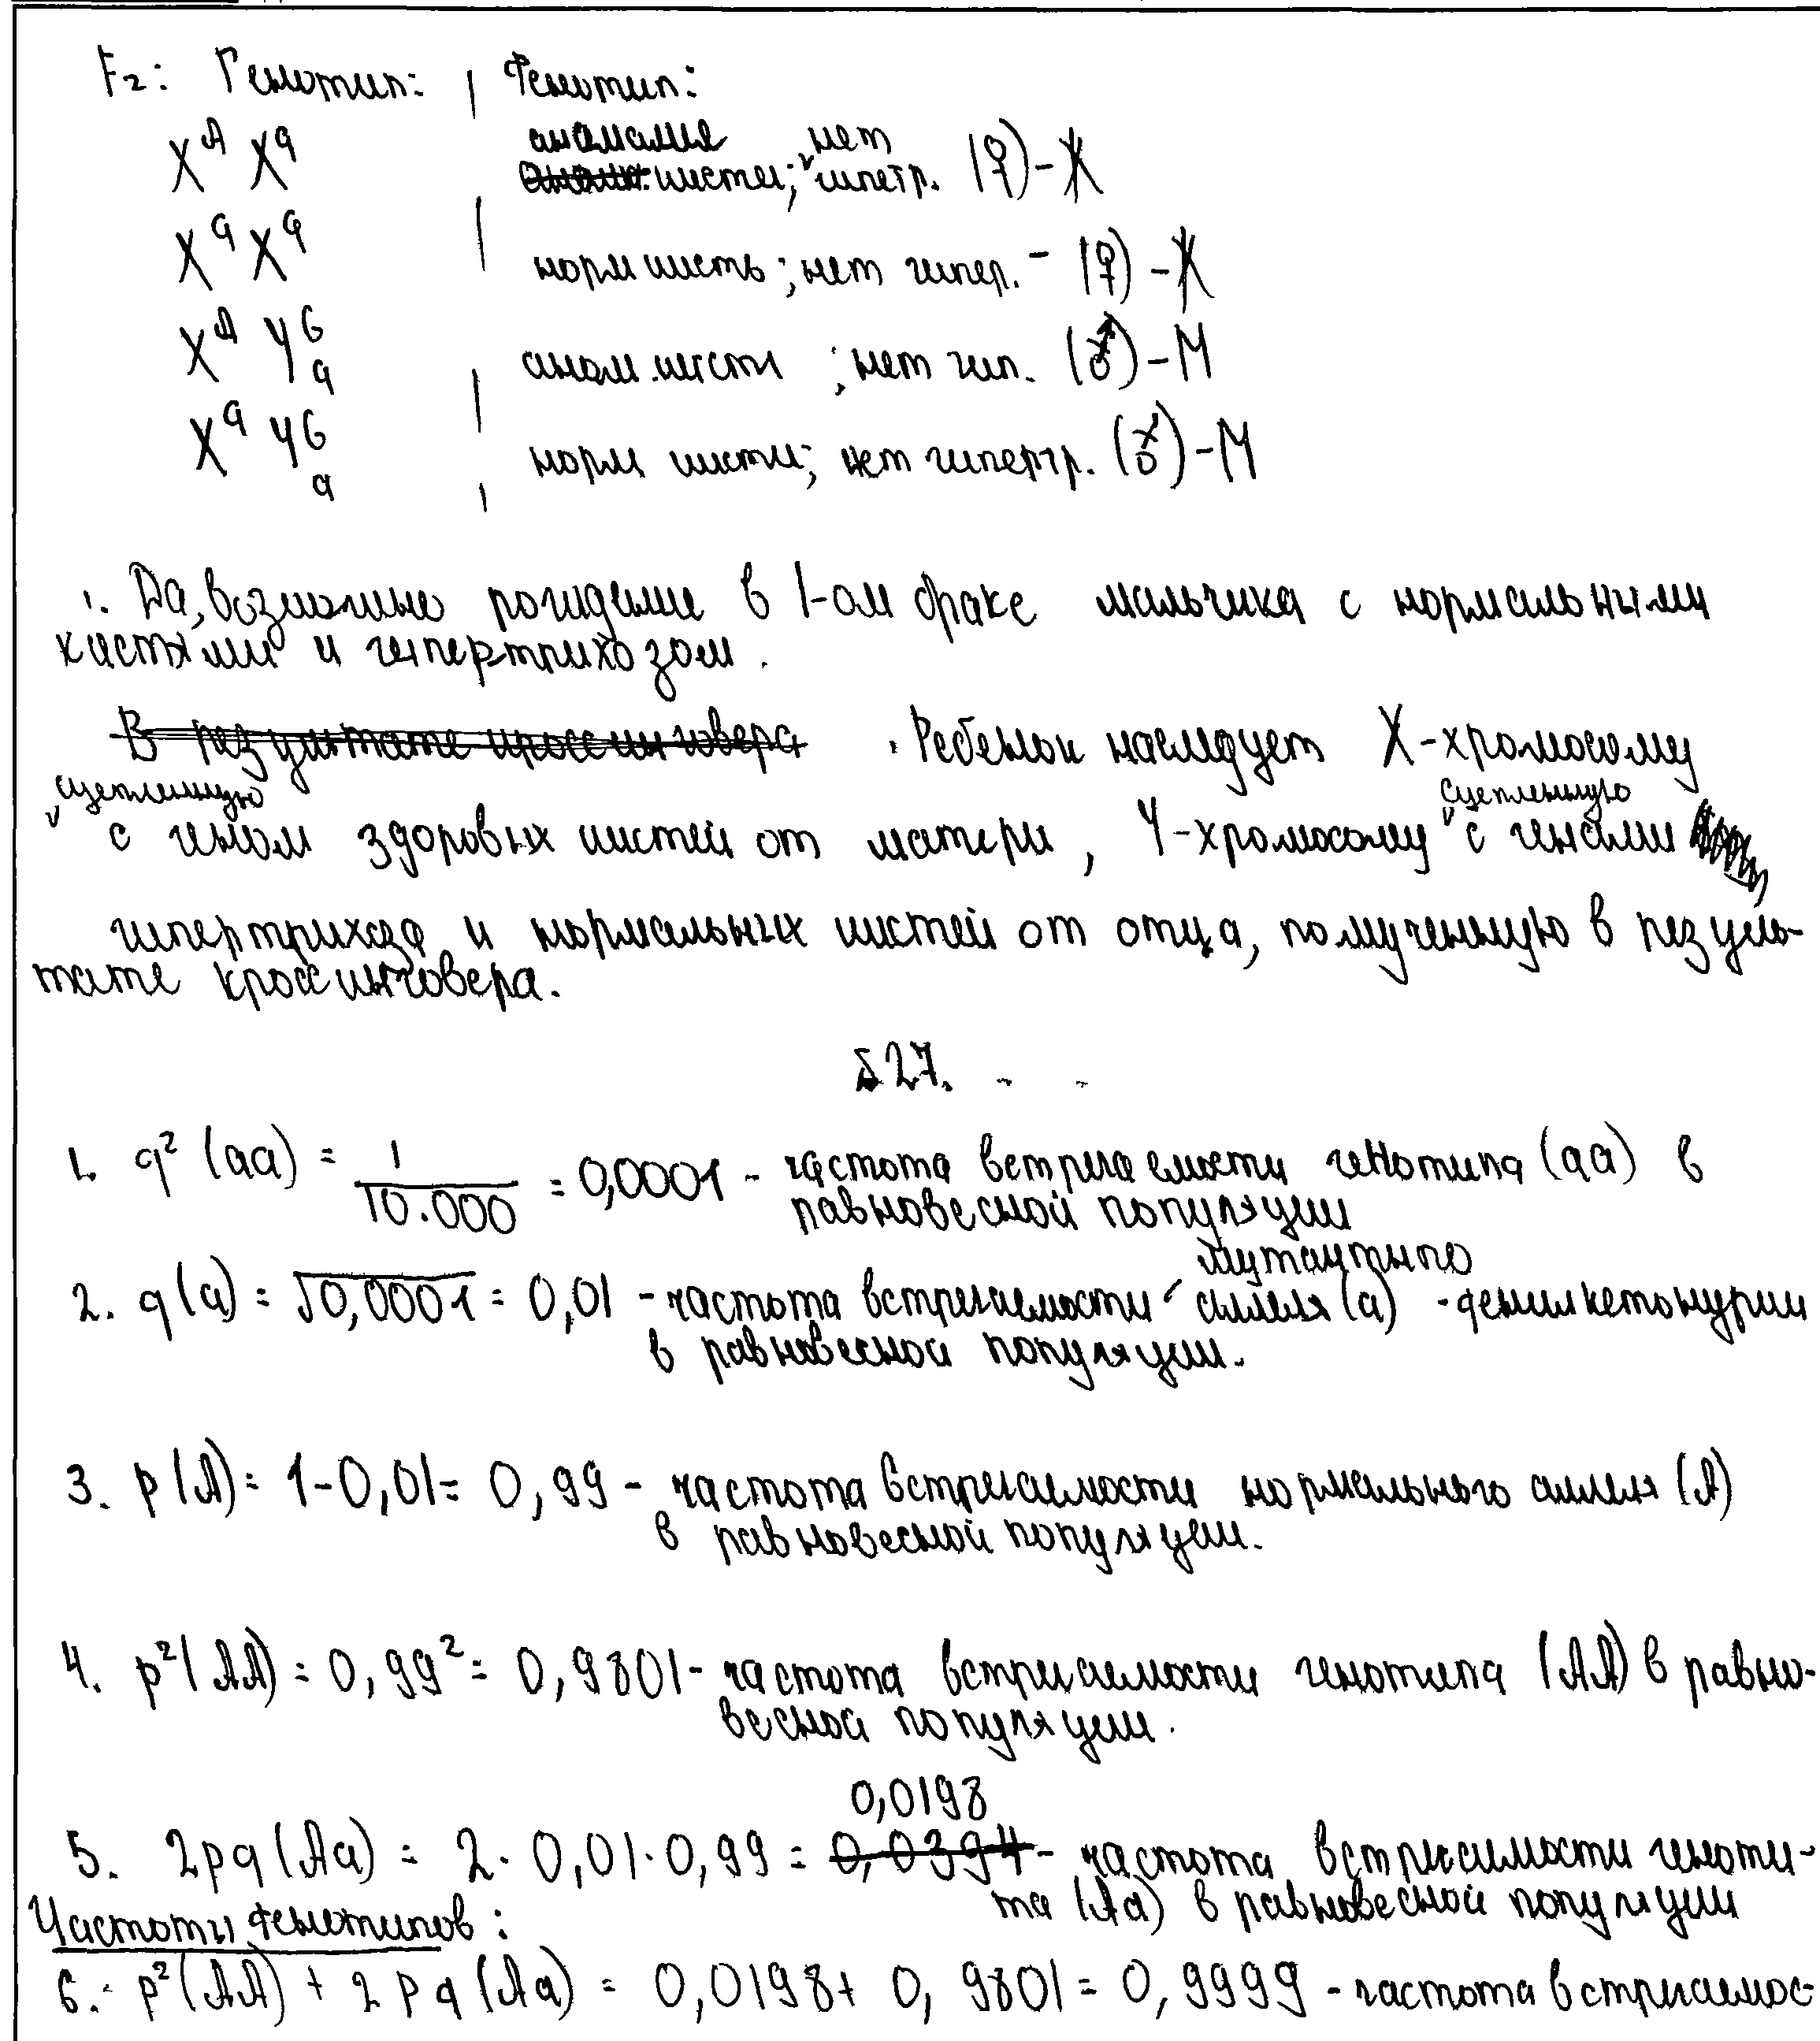 F₂: Генотип: | Фенотип:
Xᴬ Xᵃ аномалия кисти; нет гипетр. (♀)-Ж
Xᵃ Xᵃ | норм кисть; нет гипер. - (♀) -Ж
Xᴬ Yᴳₐ | аном. кисти ; нет гип. (♂)-М
Xᵃ Yᴳₐ | норм кисти; нет гипертр. (♂)-М
1. Да, возможно рождение в 1-ом браке мальчика с нормальными
кистями и гипертрихозом.
Ребенок наследует X-хромосому
сцепленную сцепленную
с геном здоровых кистей от матери, Y-хромосому с генами
гипертрихоза и нормальных кистей от отца, полученную в резуль-
тате кроссинговера.
27.
1. q² (aa) = 1/10.000 = 0,0001 - частота встречаемости генотипа (aa) в
равновесной популяции
мутантного
2. q(a) = √0,0001 = 0,01 - частота встречаемости аллеля (a) - фенилкетонурии
в равновесной популяции.
3. p(A) = 1-0,01= 0,99 - частота встречаемости нормального аллеля (A)
в равновесной популяции.
4. p²(AA) = 0,99² = 0,9801 - частота встречаемости генотипа (AA) в равно-
весной популяции.
0,0198
5. 2pq(Aa) = 2·0,01·0,99 = 0,0394 - частота встречаемости геноти-
па (Aa) в равновесной популяции
Частоты фенотипов:
6. p²(AA) + 2pq(Aa) = 0,0198+ 0,9801 = 0,9999 - частота встречаемос-